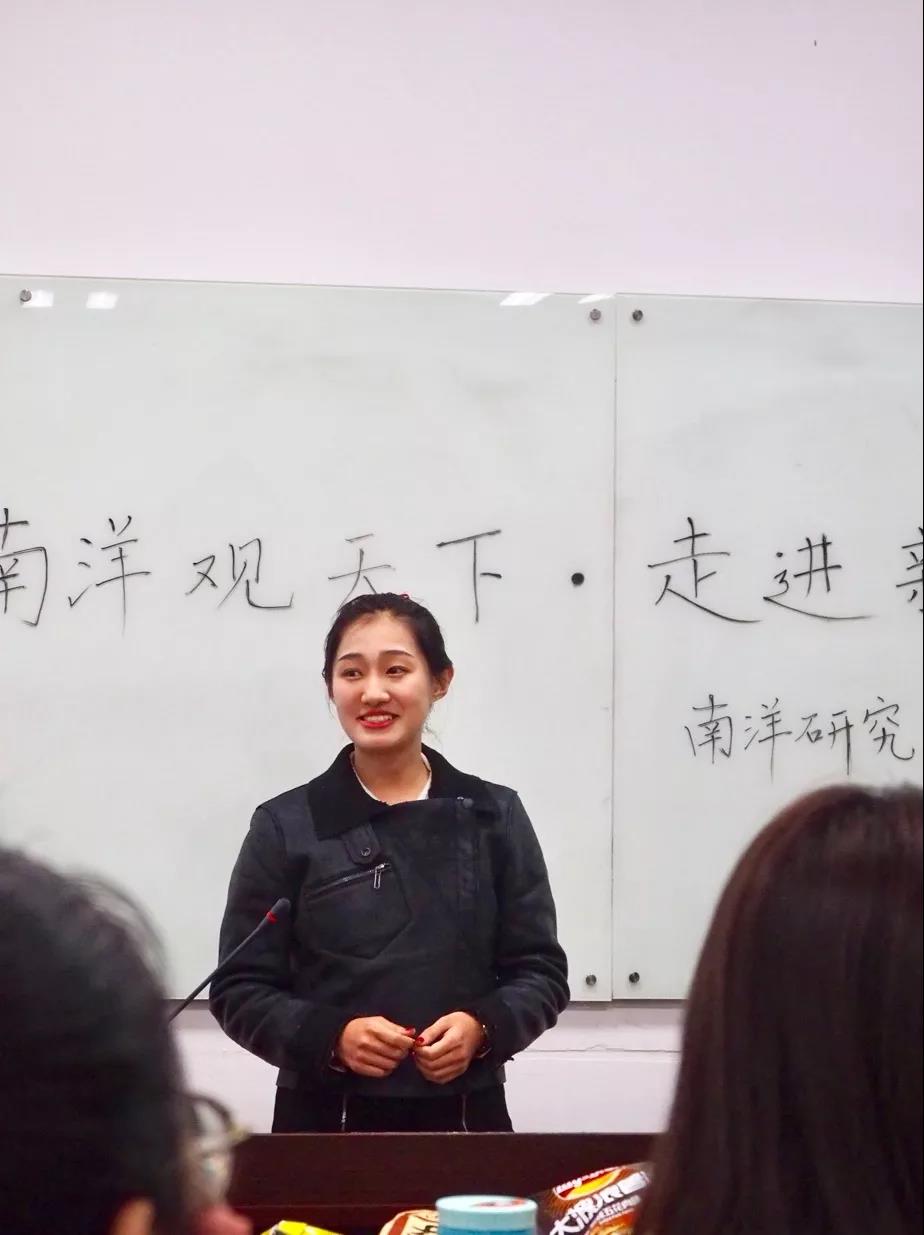 南洋观天下·走进
南洋研究
大波浪